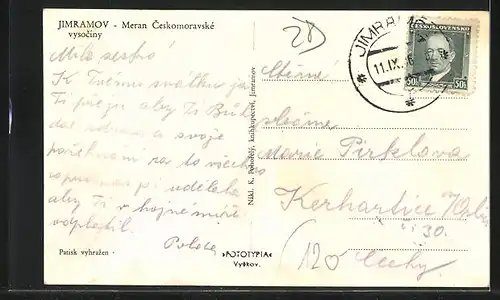 JIMRAMOV - Meran Českomoravské
vysočiny
Milá sestro!
K Tvému svátku ja
Ti přeju aby Ti Bůh
dal zdraví a svoje
požehnání za to všechno
aby Ti v hojné míře
odplatil.
Patisk vyhražen -
Nákl. K. Pohorský, knihkupectví, Jimramov
»FOTOTYPIA«
Vyškov.
JIMRAMOV
11.IX.
ČESKOSLOVENSKO
50h
Ctěná
slečna
Marie Pirklova
Kerhartice
30.
120
Čechy.